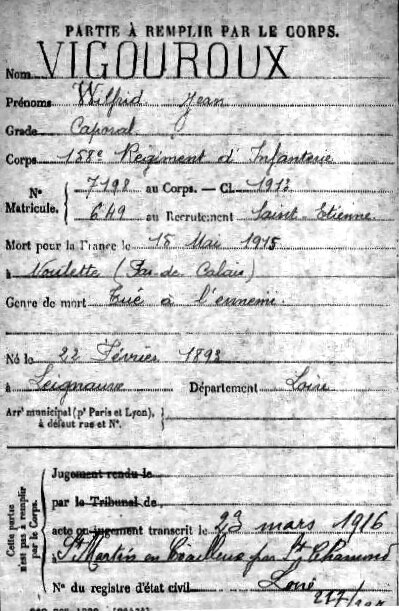 PARTIE À REMPLIR PAR LE CORPS.
Nom VIGOUROUX
Prénoms Wilfrid Jean
Grade Caporal
Corps 158e Régiment d'Infanterie
N° Matricule. { 7198 au Corps. — Cl. 1912
649 au Recrutement Saint-Etienne
Mort pour la France le 15 Mai 1915
à Noulette (Pas-de-Calais)
Genre de mort Tué à l'ennemi.
Né le 22 Février 1892
à Département Loire
Arrt municipal (pr Paris et Lyon), à défaut rue et N°.
Cette partie n'est pas à remplir par le Corps.
Jugement rendu le
par le Tribunal de
acte ou jugement transcrit le 23 mars 1916
St Martin en Coailleux par St Chamond
N° du registre d'état civil Loire